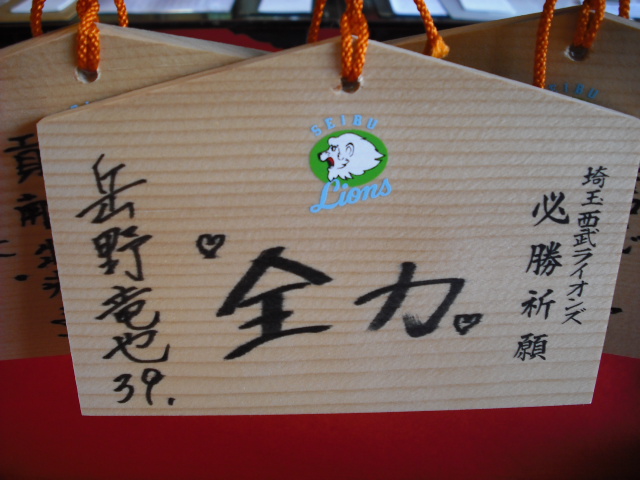 SEIBU
Lions
埼玉西武ライオンズ
必勝祈願
全力
岳野竜也
39.
貢献